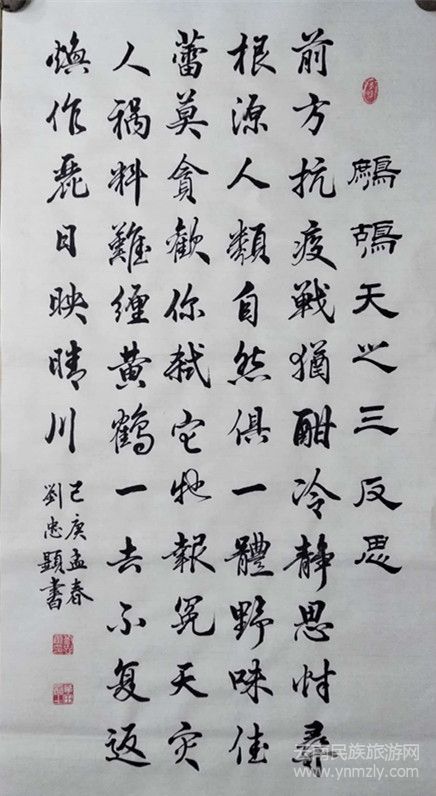 鷓鴣天之三反思
前方抗疫戰猶酣冷靜思忖尋
根源人類自然俱一體野味佳
蕾莫貪歡你弒它牠報冤天灾
人禍料難纏黃鶴一去不复返
煥作麗日映晴川
己庚孟春
劉忠顯書
云南民族旅游网
www.ynmzly.com